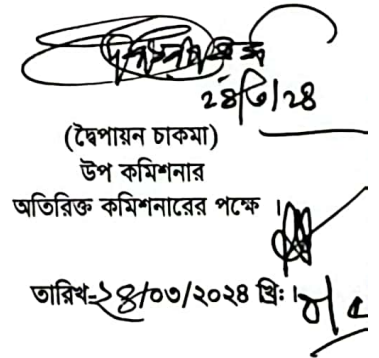 ২৪/৩/২৪
(দ্বৈপায়ন চাকমা)
উপ কমিশনার
অতিরিক্ত কমিশনারের পক্ষে ।
তারিখ-২৪/০৩/২০২৪ খ্রিঃ।